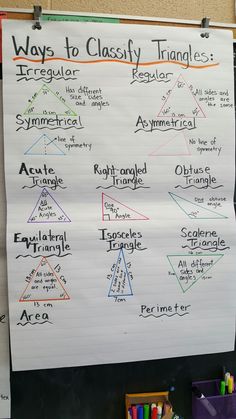 Ways to Classify Triangles:
Irregular Regular
Has different
sizes
sides and
and angles
All sides
and angles
are the
same
60°
Symmetrical Asymmetrical
line of
symmetry
No line of
symmetry
Acute
Triangle
Right-angled
Triangle
Obtuse
Triangle
All
Acute
Angles
One
90°
Angle
One obtuse
angle
Equilateral
Triangle
Isosceles
Triangle
Scalene
Triangle
13 cm
13 cm
13 cm
All sides
and angles
are equal
60°
60°
13 cm
7cm
All different
sides and
angles
Area Perimeter